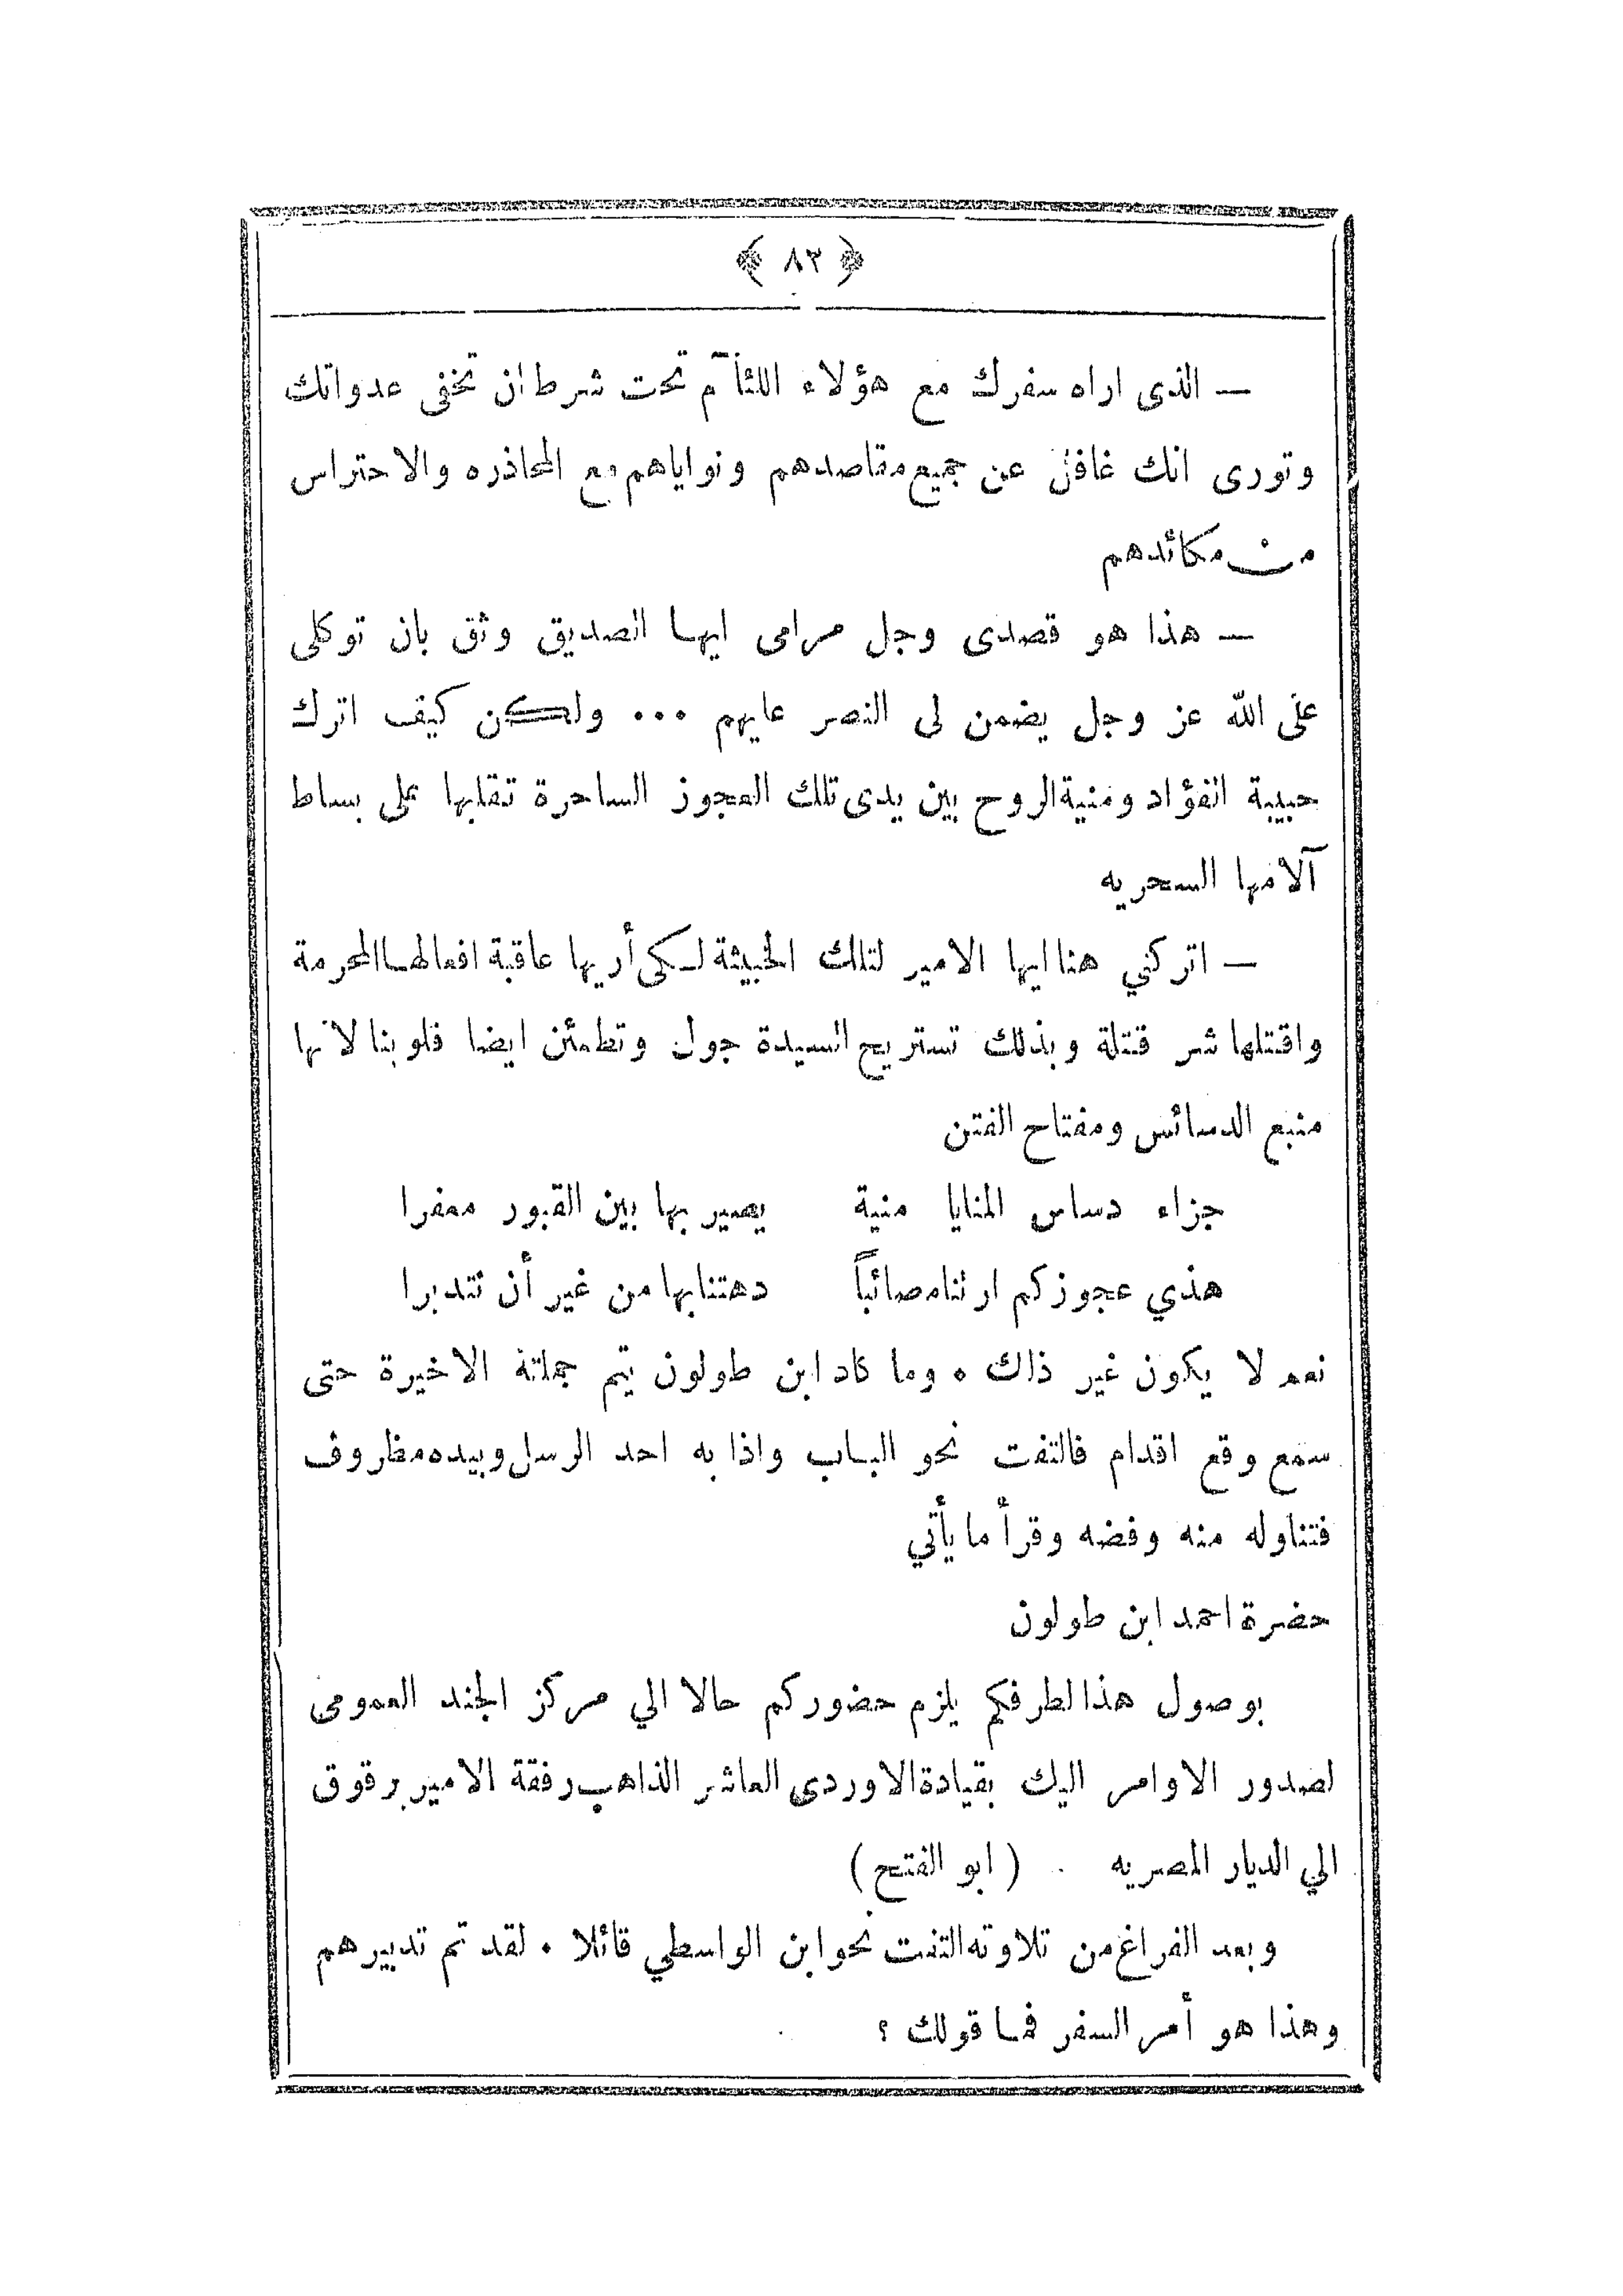 ﴿ ٨٣ ﴾
— الذى اراه سفرك مع هؤلاء اللثآم تحت شرط ان تخفى عدواتك
وتورى انك غافل عن جميع مقاصدهم ونواياهم مع المحاذره والاحتراس
من مكائدهم
— هذا هو قصدى وجل مرامى ايها الصديق وثق بان توكلى
على الله عز وجل يضمن لى النصر عليهم ... ولكن كيف اترك
حبيبة الفؤاد ومنية الروح بين يدى تلك العجوز الساحرة تقلبها على بساط
آلامها السحريه
— اتركني هنا ايها الامير لتلك الخبيثة لكى أريها عاقبة افعالها المحرمة
واقتلها شر قتلة وبذلك تستريح السيدة جول وتطمئن ايضا قلوبنا لانها
منبع الدسائس ومفتاح الفتن
جزاء دساس المنايا منية يصير بها بين القبور معفرا
هذي عجوزكم ارتنا مصائباً دهتنا بها من غير أن نتدبرا
نعم لا يكون غير ذاك . وما كاد ابن طولون يتم جملتة الاخيرة حتى
سمع وقع اقدام فالتفت نحو الباب واذا به احد الرسل وبيده مظروف
فتناوله منه وفضه وقرأ ما يأتي
حضرة احمد ابن طولون
بوصول هذا لطرفكم يلزم حضوركم حالا الي مركز الجند العمومى
لصدور الاوامر اليك بقيادة الاوردى العاشر الذاهب رفقة الامير برقوق
الي الديار المصريه . ( ابو الفتح )
وبعد الفراغ من تلاوته التفت نحو ابن الواسطي قائلا . لقد تم تدبيرهم
وهذا هو أمر السفر فما قولك ؟